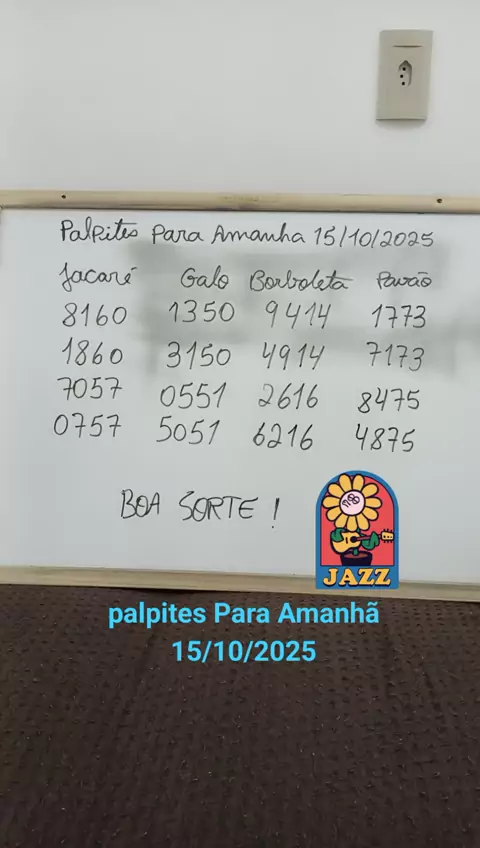 Palpites Para Amanha 15/10/2025
Jacaré Galo Borboleta Pavão
8160 1350 9414 1773
1860 3150 4914 7173
7057 0551 2616 8475
0757 5051 6216 4875
BOA SORTE !
JAZZ
palpites Para Amanhã
15/10/2025